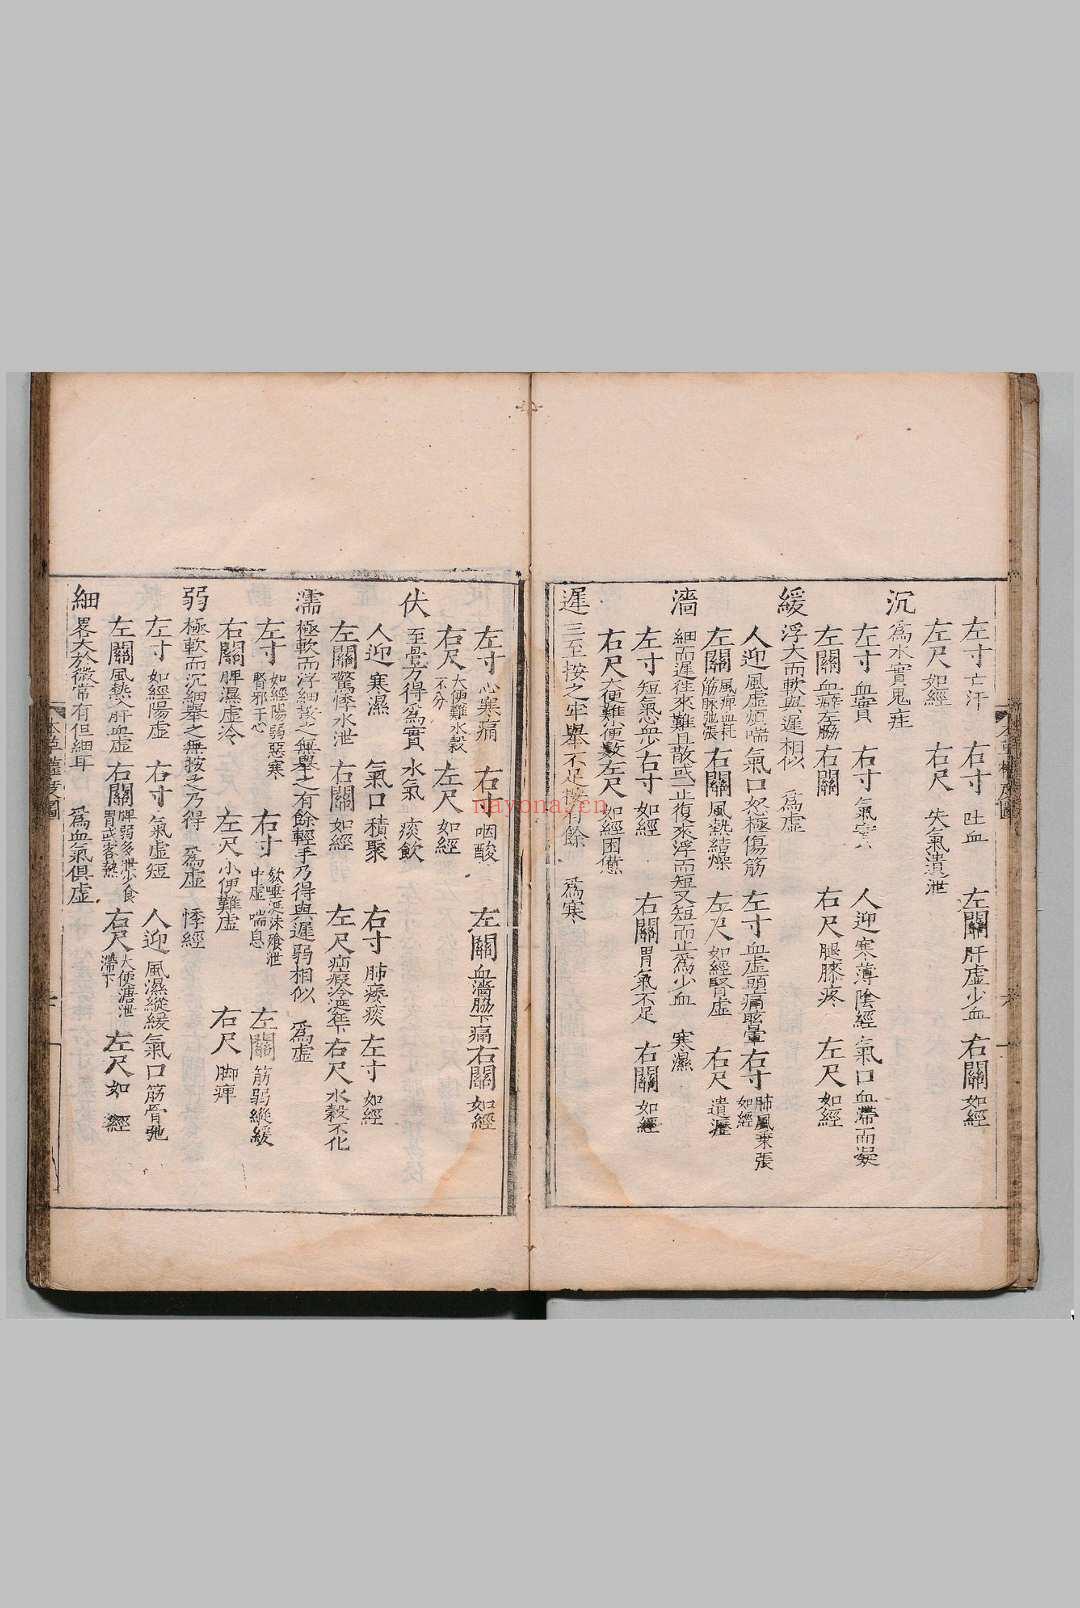 左寸亡汗 右寸吐血 左關肝虛少血 右關如經
左尺如經 右尺失氣遺泄
沉為水實鬼疰
左寸血實 右寸氣實 人迎寒薄陰經 氣口血滯而凝
左關血癖左脇 右關 右尺腿膝疼 左尺如經
緩浮大而軟與遲相似 為虛
人迎風虛煩喘 氣口怒極傷筋 左寸血虛頭痛眩暈 右寸肺風乘張如經
左關風痺血耗筋脉弛張 右關風熱結燥 左尺如經腎虛 右尺遺瀝
濇細而遲往來難且散或一止復來浮而短又短而止為少血 寒濕
左寸短氣心血少 右寸如經 右關胃氣不足 右關如經
右尺大便難小便數 左尺如經困憊
遲三至按之牢舉不足按有餘 為寒
左寸心寒痛 右寸咽酸 左關血濇脇下痛 右關如經
右尺大便難水穀不分 左尺如經
伏至骨方得為實 水氣 痰飲
人迎寒濕 氣口積聚 右寸肺痿痰 左寸如經
左關驚悸水泄 右關如經 左尺疝瘕冷 右尺水穀不化
濡極軟而浮細按之無舉之有餘輕手乃得與遲弱相似 為虛
左寸如經陽弱惡寒腎邪干心 右寸飲唾涎沫飱泄中虛喘息 左關筋弱縱緩
右關脾濕虛冷 左尺小便難虛 右尺脚痺
弱極軟而沉細舉之無按之乃得 為虛 悸經
左寸如經陽虛 右寸氣虛短 人迎風濕縱緩 氣口筋骨弛
左關風熱肝血虛 右關脾弱多泄少食胃或客熱 右尺大便溏泄滯下 左尺如經
細畧大於微常有但細耳 為血氣俱虛
nayona.cn